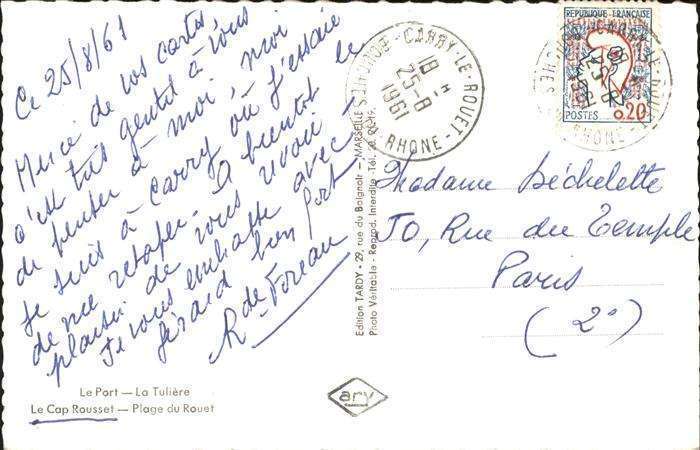 Ce 25/8/61
Merci de vos cartes
c'est très gentil à vous
de penser à moi, moi
je suis à Carry où j'essaie
de me retaper. A bientôt le
plaisir de vous revoir -
Je vous souhaite avec
Gérard bon Port
R. de Foreau
Le Port — La Tulière
Le Cap Rousset — Plage du Rouet
Edition TARDY • 29, rue du Baignoir - MARSEILLE
Photo Véritable - Reprod. Interdite - Tél.
ary
CARRY-LE-ROUET
18 H
25-8
1961
B-DU-RHONE
REPUBLIQUE FRANÇAISE
0,20
POSTES
Madame Béchelette
50, Rue du Temple
Paris
(2°)